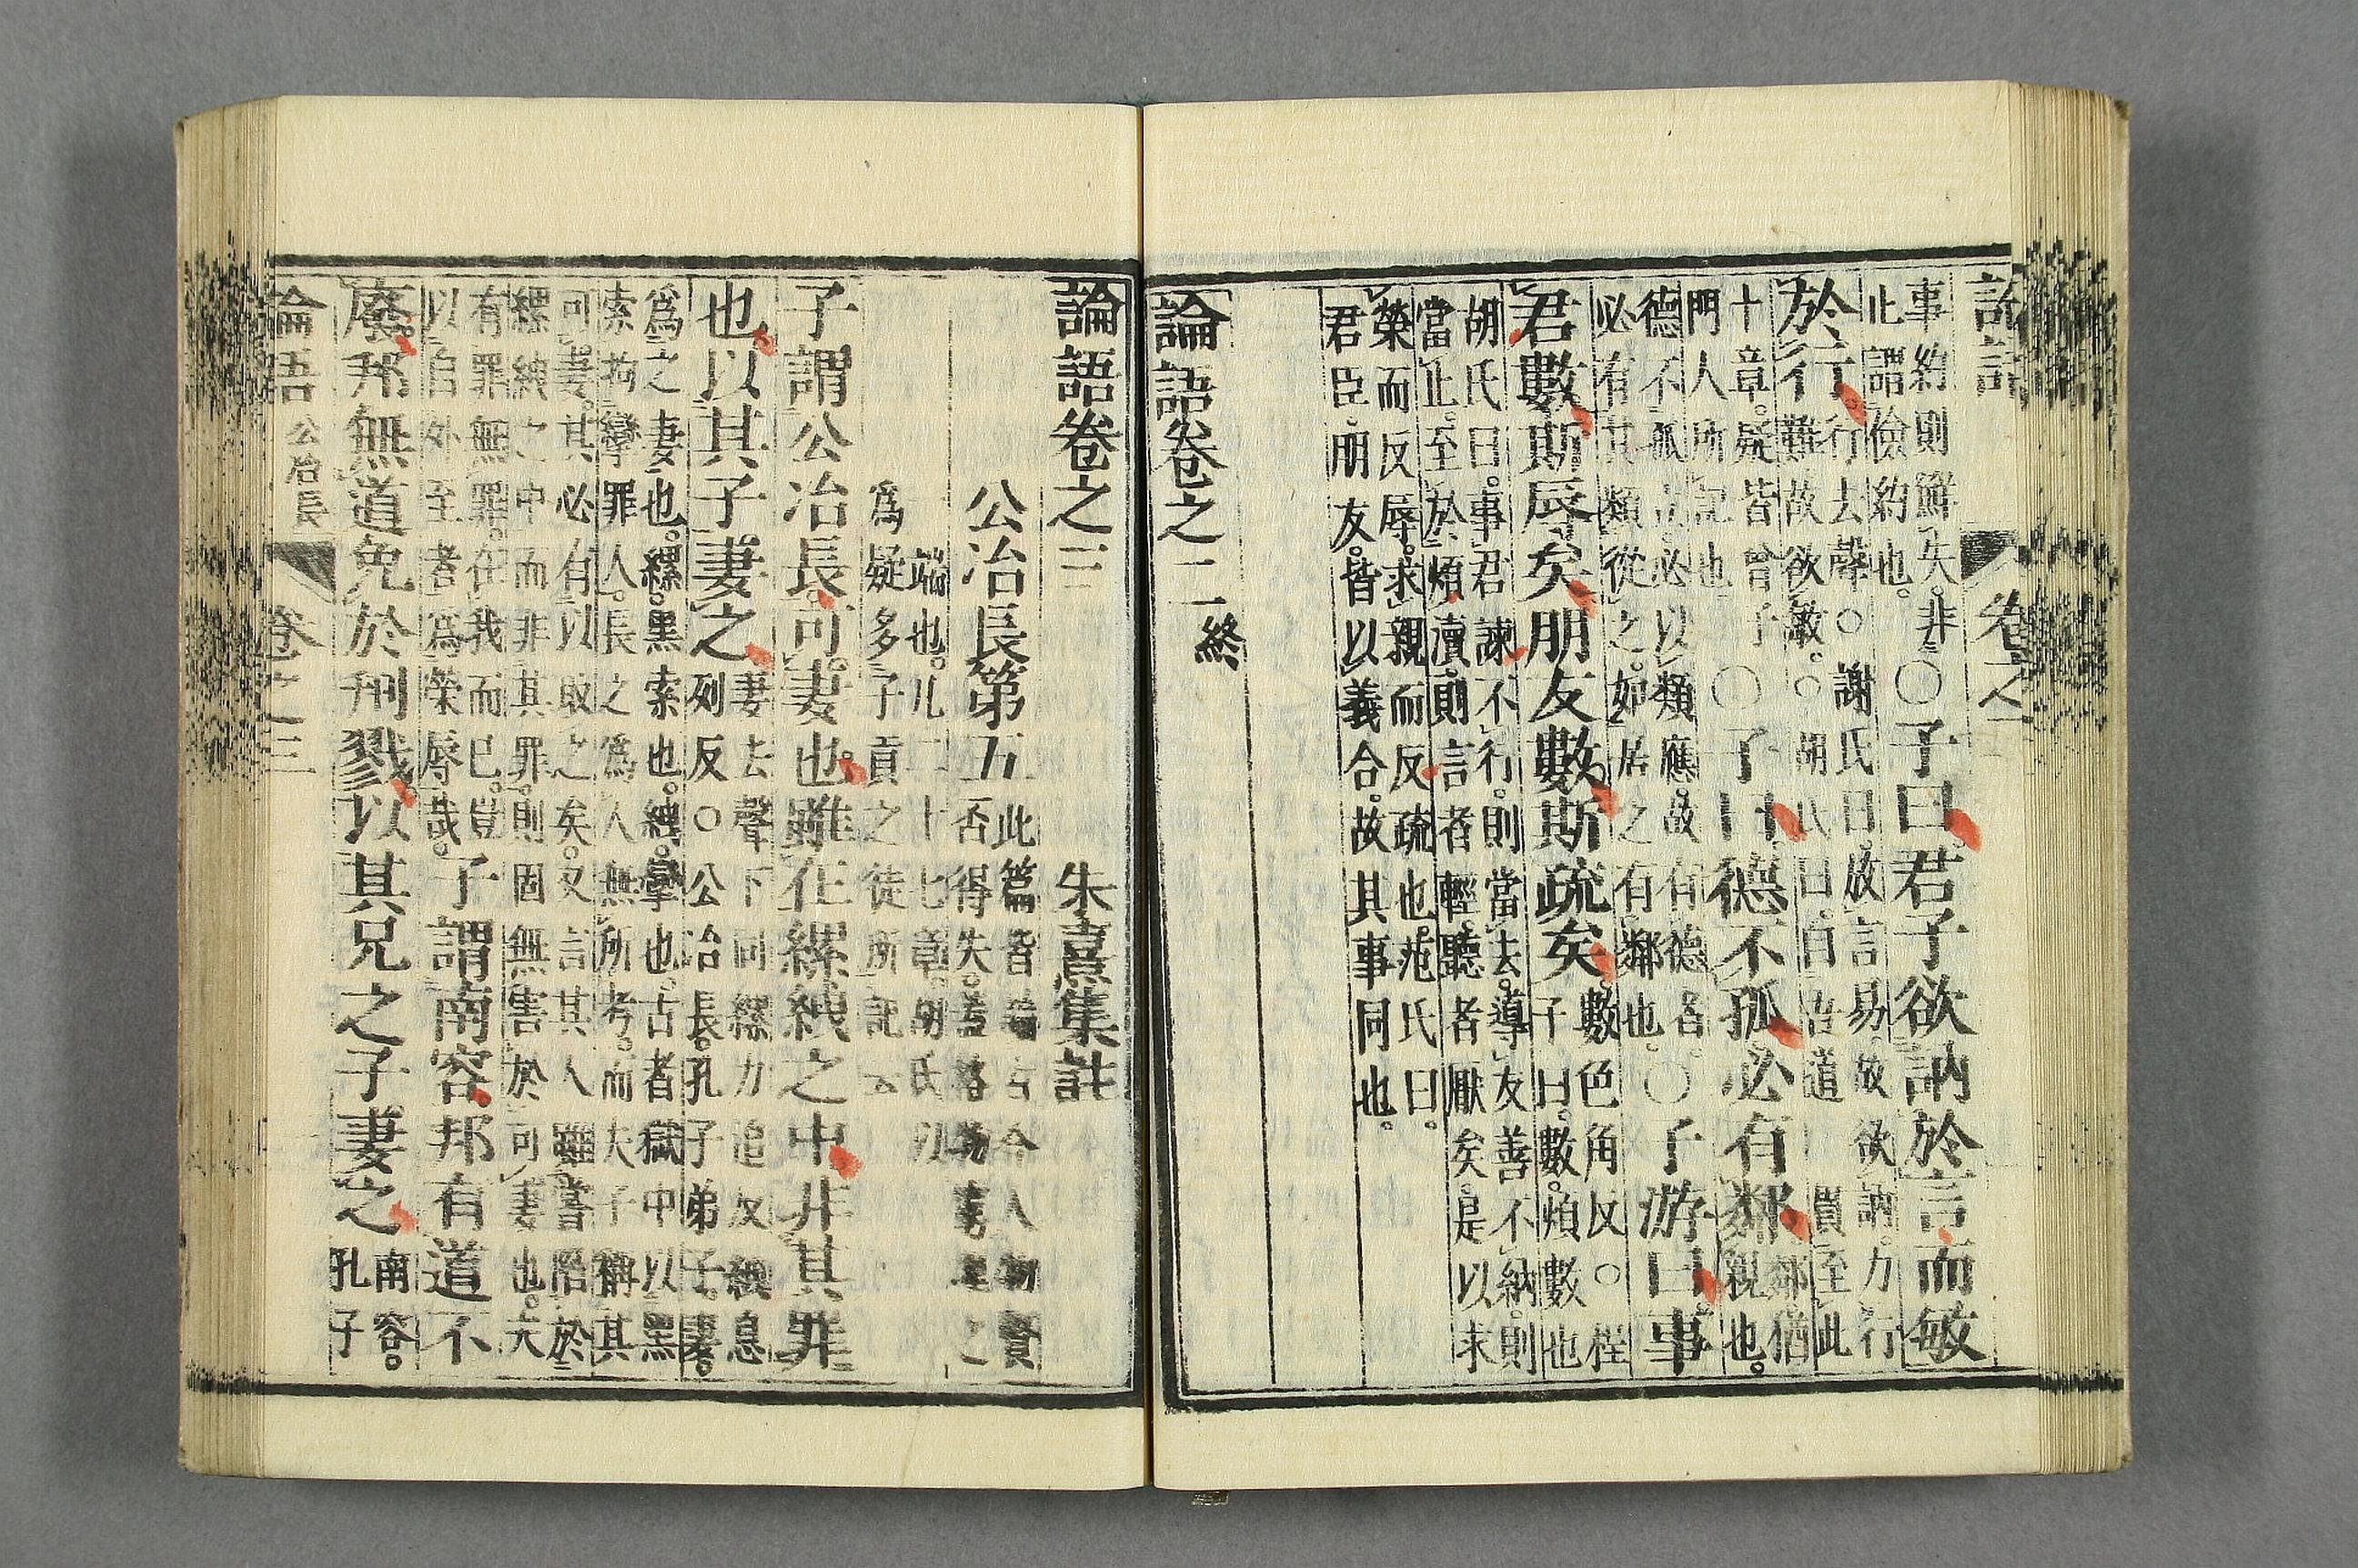 卷之二
事約則鮮失。非
止謂儉約也。
○子曰。君子欲訥於言而敏
於行。
行去聲○謝氏曰。放言易。故欲訥。力行
難故欲敏。○胡氏曰。自吾道一貫至此
十章。疑皆曾子
門人所記也。
○子曰德不孤必有鄰
鄰猶
親也。
德不孤立必以類應。故有德者。
必有其類從之。如居之有鄰也。
○子游曰。事
君數斯辱矣朋友數斯疏矣
數色角反○程
子曰。數。煩數也
胡氏曰。事君諫不行。則當去。導友善不納。則
當止。至於煩瀆。則言者輕。聽者厭矣。是以求
榮而反辱。求親而反疏也。范氏曰。
君臣。朋友。皆以義合。故其事同也。
論語卷之二終
論語卷之三
朱熹集註
公冶長第五
此篇皆論古今人物賢
否得失。蓋格物窮理之
端也。凡二十七章。胡氏以
爲疑多子貢之徒所記云
子謂公冶長。可妻也。雖在縲絏之中。非其罪
也。以其子妻之。
妻去聲下同縲力追反絏息
列反○公冶長。孔子弟子。妻。
爲之妻也。縲。黑索也。絏。攣也。古者獄中以黑
索拘攣罪人。長之爲人無所考。而夫子稱其
可妻。其必有以取之矣。又言其人雖嘗陷於
縲絏之中而非其罪。則固無害於可妻也。夫
有罪無罪。在我而已。豈
以自外至者爲榮辱哉。
子謂南容。邦有道不
廢。邦無道免於刑戮。以其兄之子妻之。
南容。
孔子
論語
公冶長
卷之三